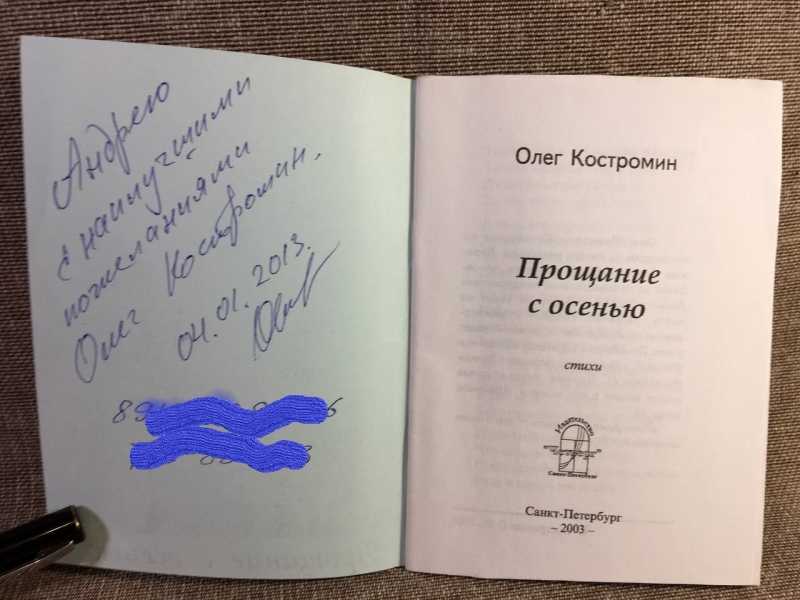 Андрею
с наилучшими
пожеланиями
Олег Костромин.
04.01.2013.
Олег Костромин
Прощание
с осенью
стихи
Издательство
Санкт-Петербург
Санкт-Петербург
– 2003 –